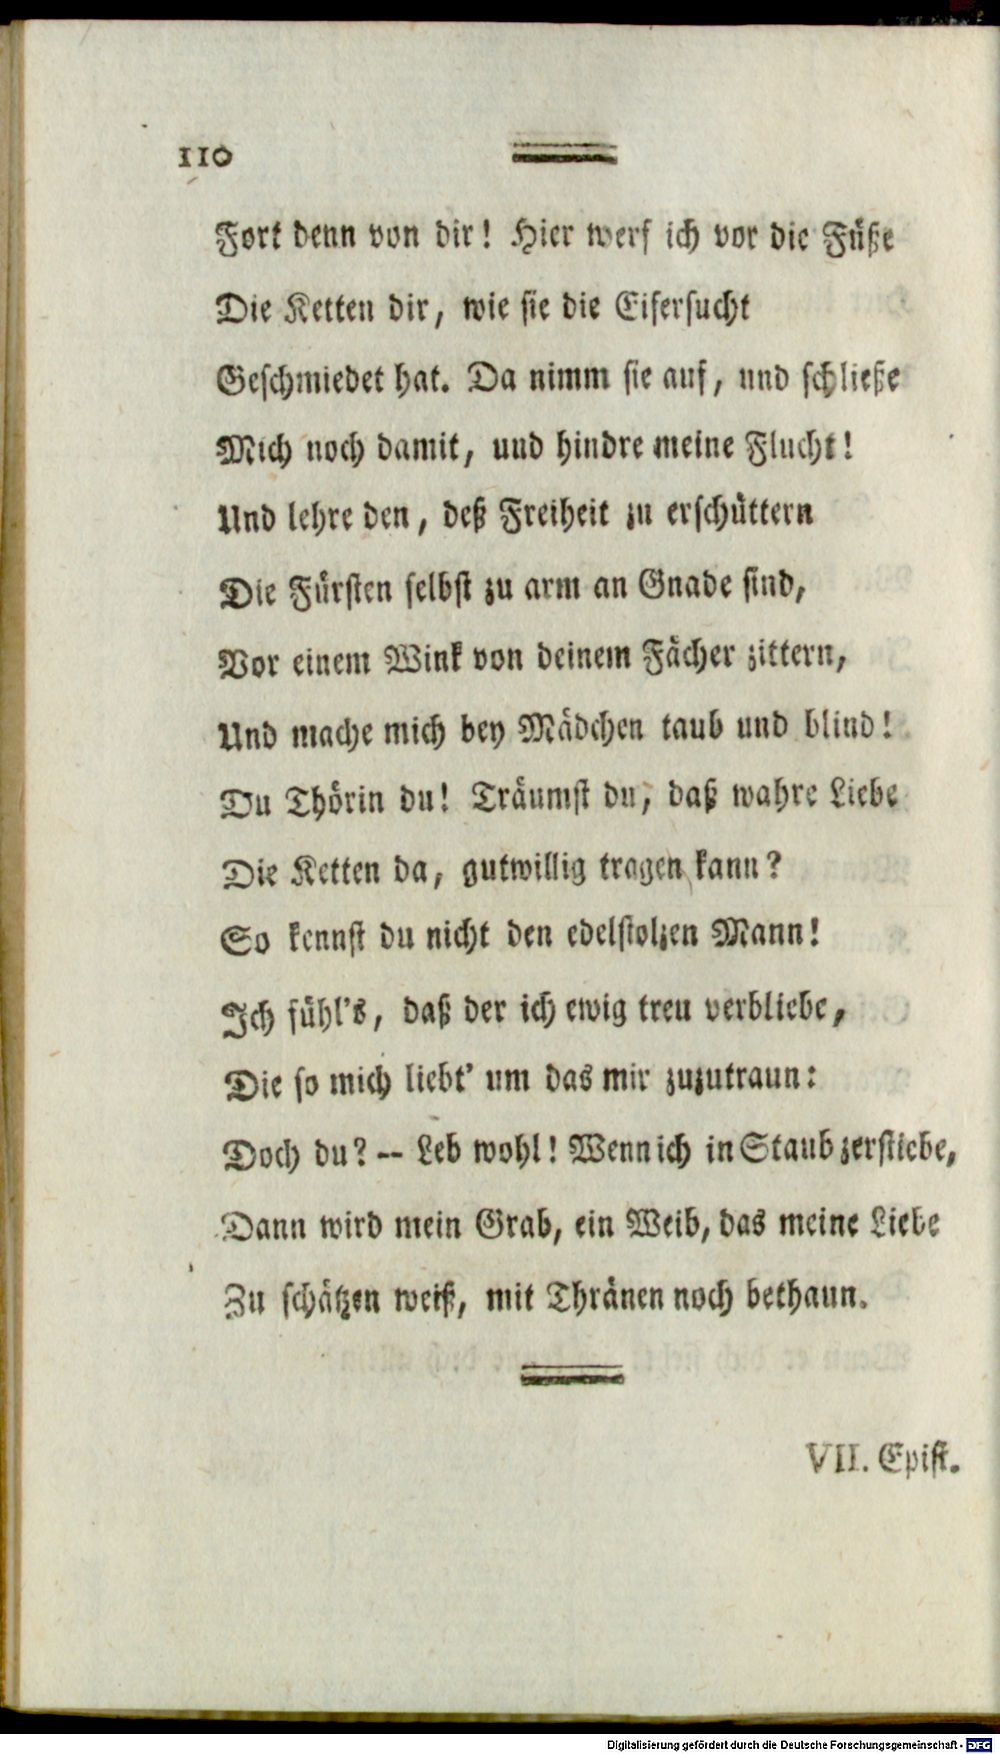 110
Fort denn von dir! Hier werf ich vor die Füße
Die Ketten dir, wie sie die Eifersucht
Geschmiedet hat. Da nimm sie auf, und schließe
Mich noch damit, und hindre meine Flucht!
Und lehre den, deß Freiheit zu erschüttern
Die Fürsten selbst zu arm an Gnade sind,
Vor einem Wink von deinem Fächer zittern,
Und mache mich bey Mädchen taub und blind!
Du Thörin du! Träumst du, daß wahre Liebe
Die Ketten da, gutwillig tragen kann?
So kennst du nicht den edelstolzen Mann!
Ich fühl's, daß der ich ewig treu verbliebe,
Die so mich liebt' um das mir zuzutraun:
Doch du? -- Leb wohl! Wenn ich in Staub zerstiebe,
Dann wird mein Grab, ein Weib, das meine Liebe
Zu schätzen weiß, mit Thränen noch bethaun.
VII. Epist.
Digitalisierung gefördert durch die Deutsche Forschungsgemeinschaft - DFG